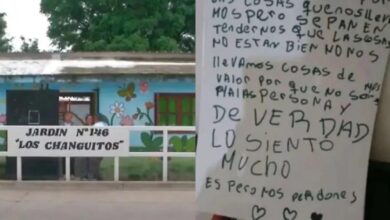 JARDIN Nº 146
"LOS CHANGUITOS"
MOS PERO SEPAN EN
TENDERNOS QUE LAS COSAS
NO ESTAN BIEN NO NOS
LLEVAMOS COSAS DE
VALOR POR QUE NO SOMOS
MALAS PERSONA Y
DE VERDAD
LO SIENTO
MUCHO
ESPERO NOS PERDONES